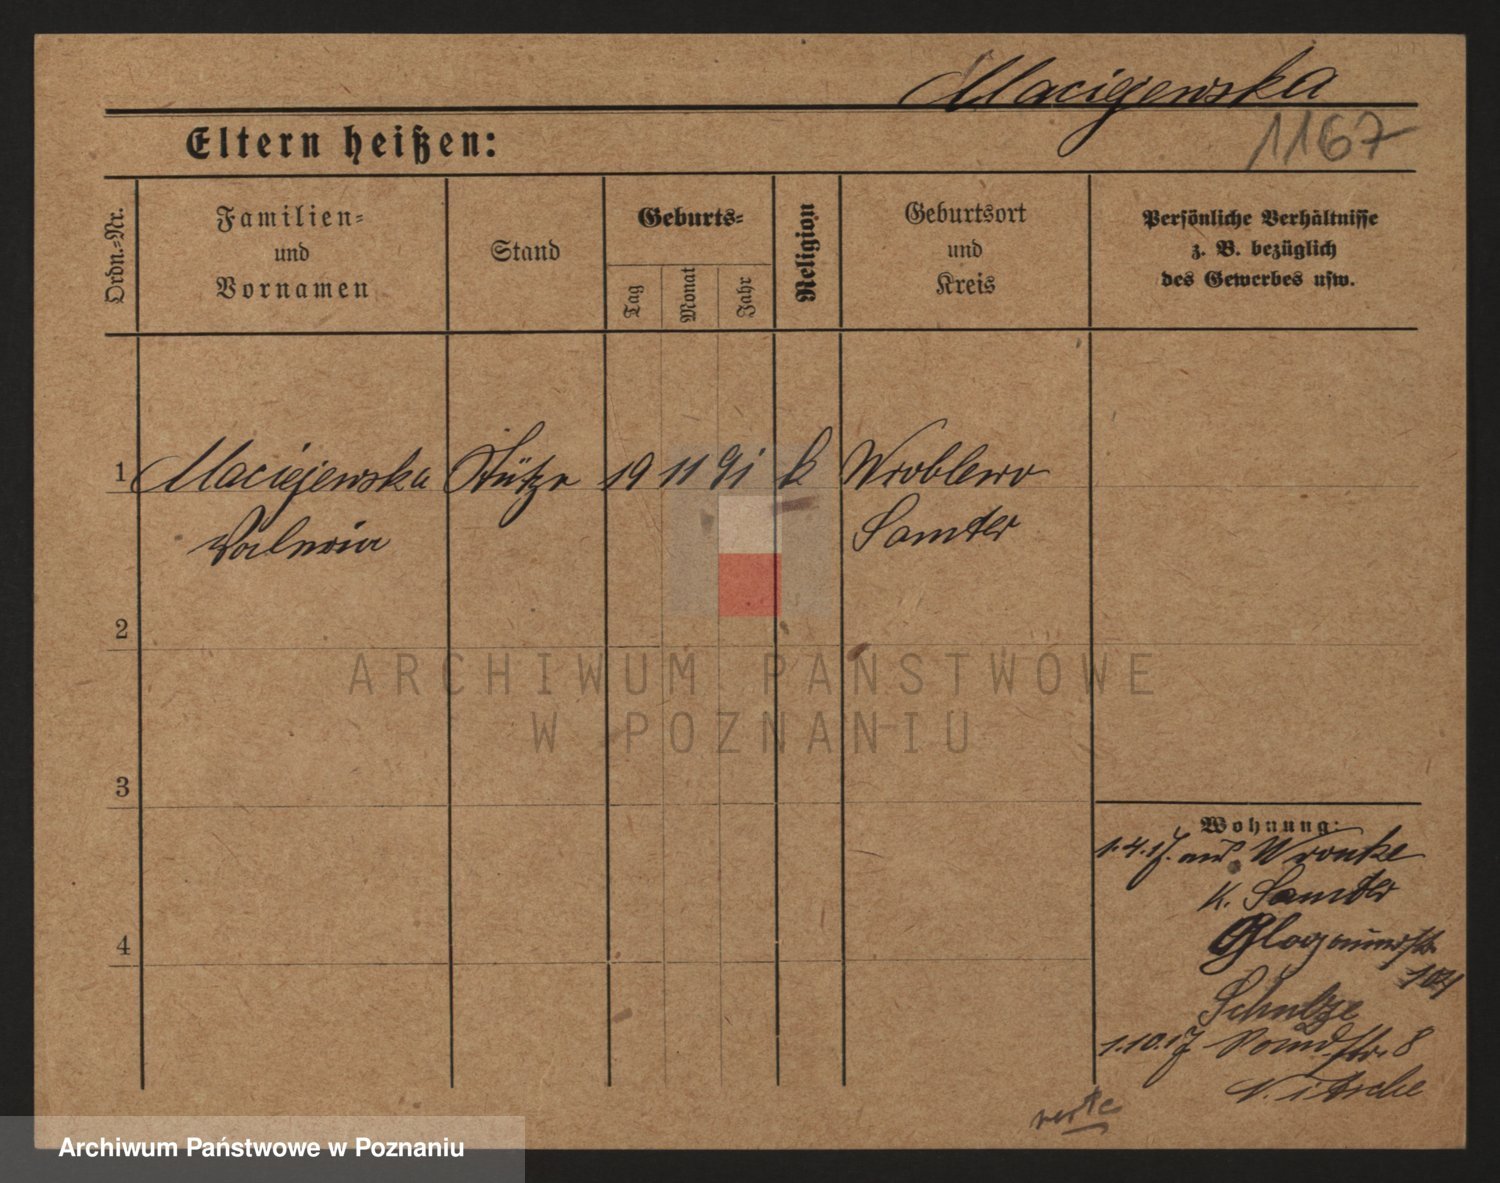 Maciejewska
1167
Eltern heißen:
Ordn.-Nr.
Familien-
und
Vornamen
Stand
Geburts-
Tag
Monat
Jahr
Religion
Geburtsort
und
Kreis
Persönliche Verhältnisse
z. B. bezüglich
des Gewerbes usw.
1 Maciejewska Stütze 19 11 91 k Wroblewo
Samter
2
3
4
Wohnung:
1.4.17. aus Wronke
K. Samter
Glogauerstr.
104
Schulze
1.10.17 8
Nitsche
verte
ARCHIWUM PAŃSTWOWE
W POZNANIU
Archiwum Państwowe w Poznaniu